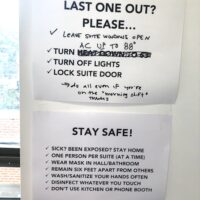 LAST ONE OUT?
PLEASE...
✓ LEAVE SUITE WINDOWS OPEN
AC UP TO 88°
✓ TURN HEAT DOWN TO 65
✓ TURN OFF LIGHTS
✓ LOCK SUITE DOOR
→ do all even if you're
on the "morning shift"
THANKS
STAY SAFE!
✓ SICK? BEEN EXPOSED? STAY HOME
✓ ONE PERSON PER SUITE (AT A TIME)
✓ WEAR MASK IN HALL/BATHROOM
✓ REMAIN SIX FEET APART FROM OTHERS
✓ WASH/SANITIZE YOUR HANDS OFTEN
✓ DISINFECT WHATEVER YOU TOUCH
✓ DON'T USE KITCHEN OR PHONE BOOTH